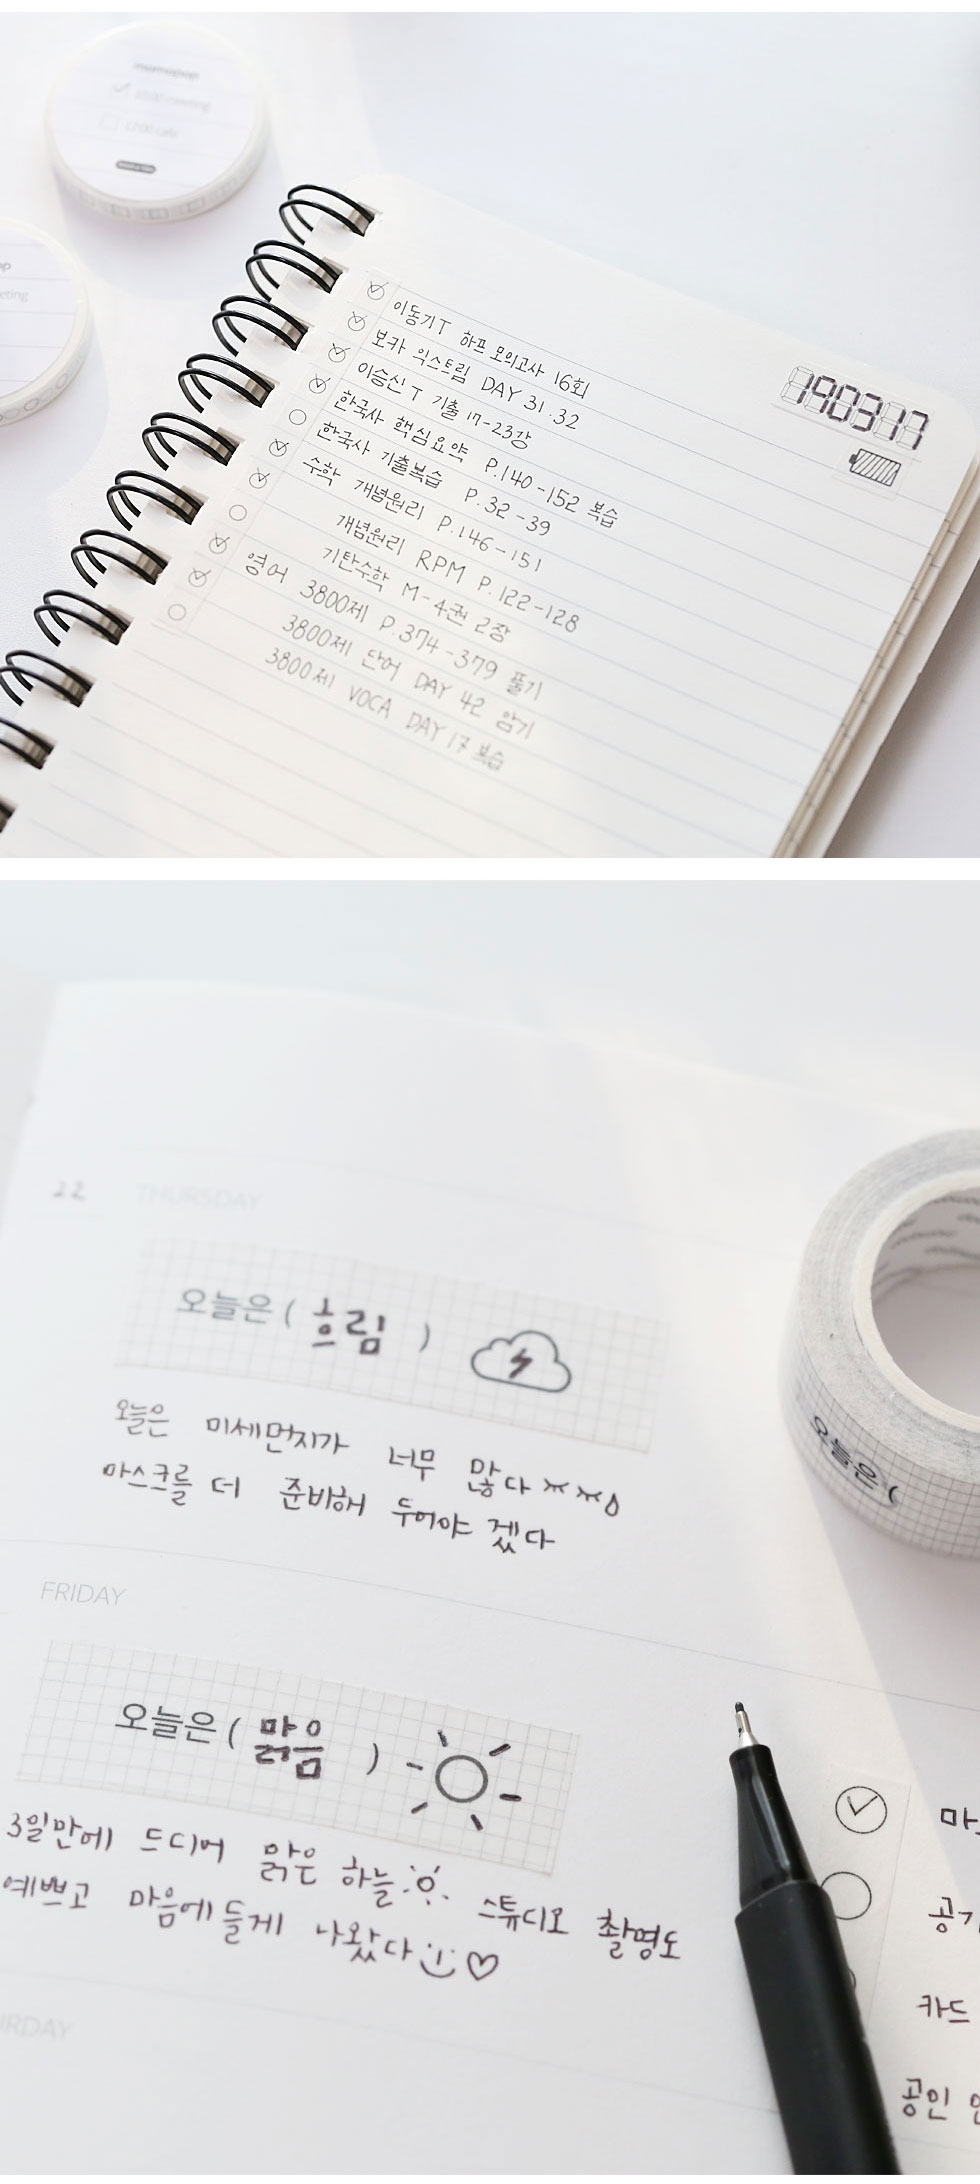 10:00 meeting
12:00 cafe
eting
이동기T 하프 모의고사 16회
보카 익스트림 DAY 31.32
이승신T 기출 17-23강
한국사 핵심요약 P.140-152 복습
한국사 기출복습 P.32-39
수학 개념원리 P.146-151
개념원리 RPM P.122-128
기탄수학 M-4권 2장
영어 3800제 P.374-379 풀기
3800제 단어 DAY 42 암기
3800제 VOCA DAY 17 복습
190317
22 THURSDAY
오늘은 ( 흐림 )
오늘은 미세먼지가 너무 많다ㅠㅠ
마스크를 더 준비해 두어야 겠다
오늘은 (
FRIDAY
오늘은 ( 맑음 )
3일만에 드디어 맑은 하늘 스튜디오 촬영도
예쁘고 마음에 들게 나왔다
URDAY
카드
공인